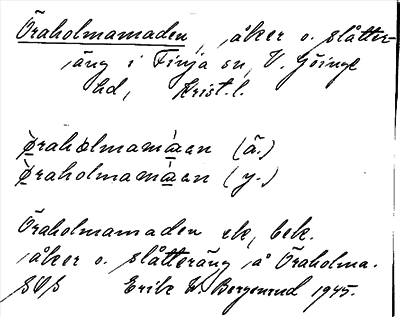 Öraholmamaden, åker o. slåtter-
äng i Finja sn, V. Göinge
hd, Krist. l.
ø̀raholmamàan (ä.)
ø̀raholmamàan (y.)
Öraholmamaden ek, bek.
åker o. slåtteräng å Öraholma.
Erik W. Bergenrud 1945.